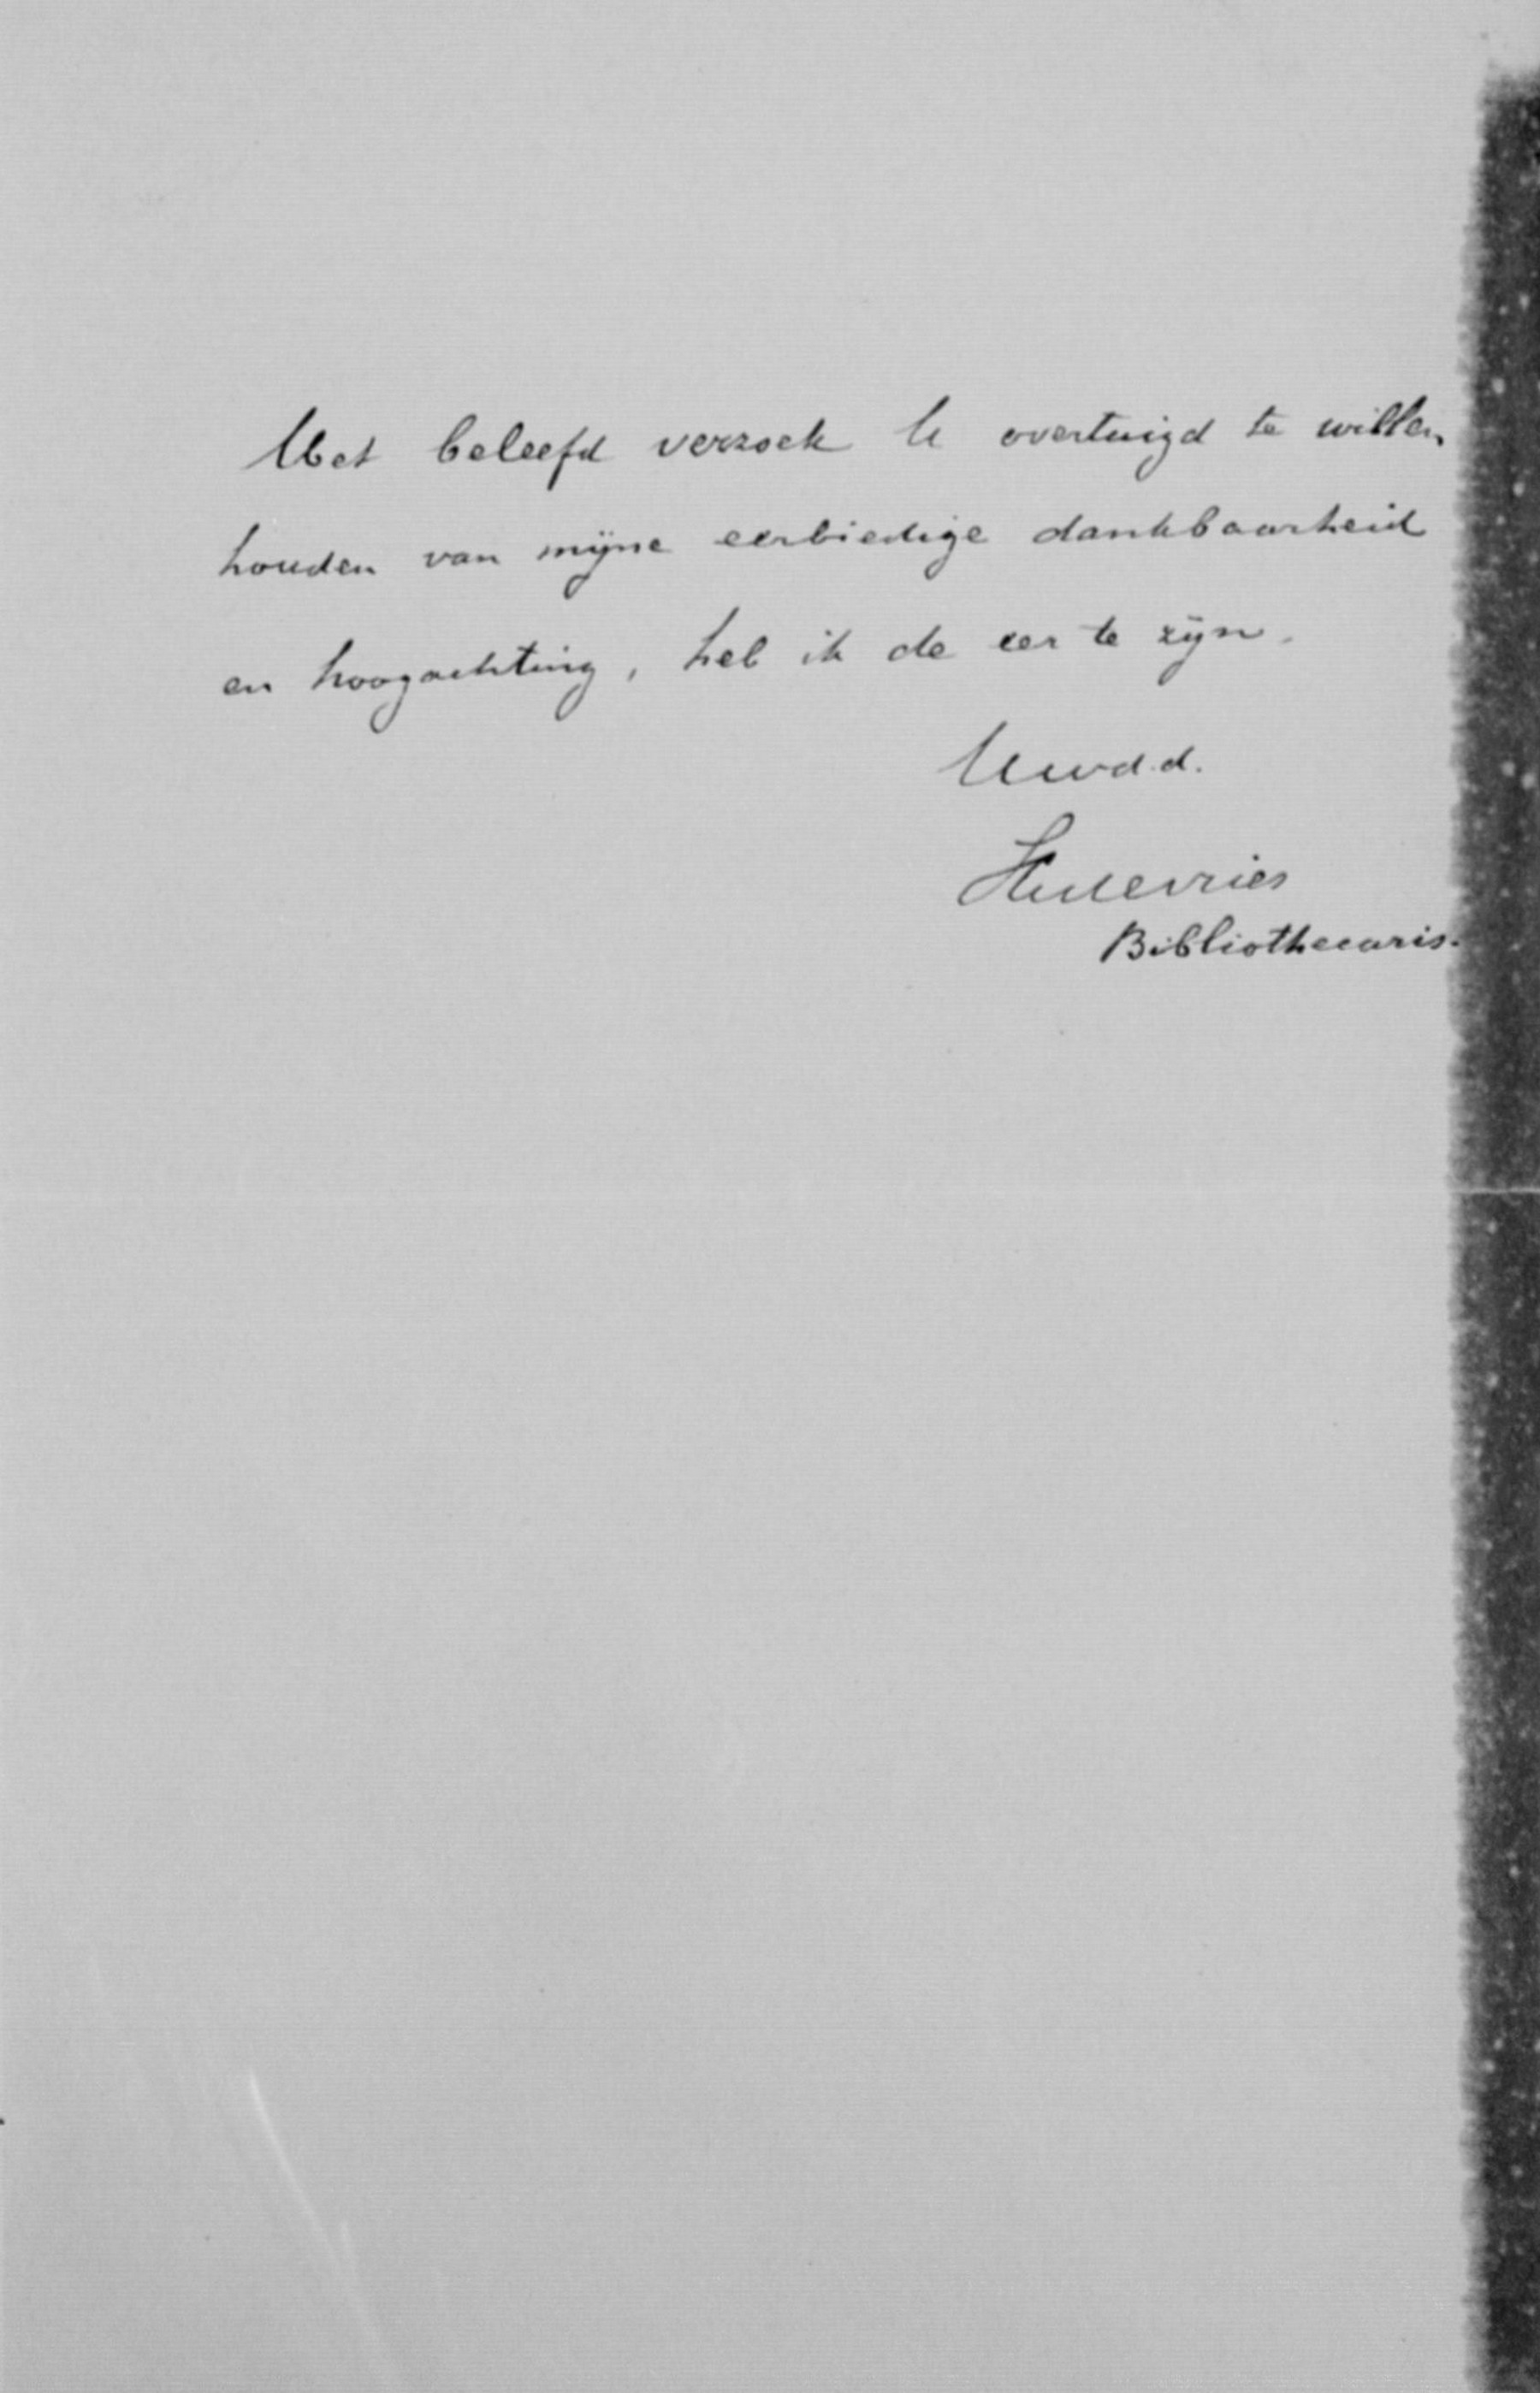 Met beleefd verzoek U overtuigd te willen
houden van mijne eerbiedige dankbaarheid
en hoogachting, heb ik de eer te zijn.
Uwd.d.
Bibliothecaris.